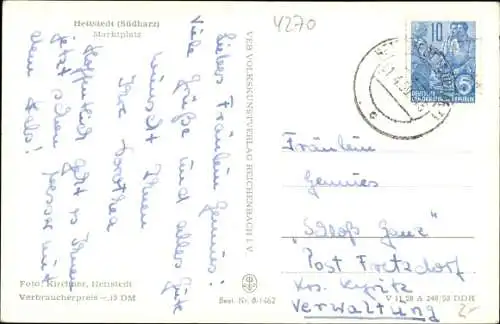 Hettstedt (Südharz)
Marktplatz
4270
Liebes Fräulein Gennies!
Viele Grüße und alles Gute
wünscht Ihnen
Ihre Dorothea
Hoffentlich geht es Ihnen
jetzt schon besser mit
dem Hals!
Foto: Kirchner, Hettstedt
Verbraucherpreis -,15 DM
VEB VOLKSKUNSTVERLAG REICHENBACH I. V.
Best. Nr. 8/1462
10
DEUTSCHE
DEMOKRATISCHE REPUBLIK
5
Fräulein
Gennies
"Schloß Ganz"
Post Fretzdorf
Krs. Kyritz
Verwaltung
V 11 28 A 248/58 DDR
2,-